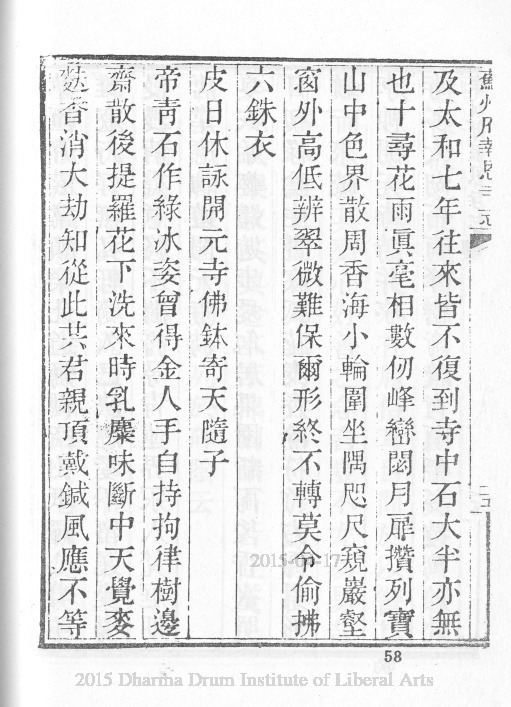 及太和七年往來皆不復到寺中石大半亦無
也十尋花雨眞毫相數仞峰巒閟月扉攢列寶
山中色界散周香海小輪圍坐隅咫尺窺巖壑
窗外高低辨翠微難保爾形終不轉莫令偷拂
六銖衣
皮日休詠開元寺佛鉢寄天隨子
帝靑石作綠冰姿曾得金人手自持拘律樹邊
齋散後提羅花下洗來時乳麋味斷中天覺麥
麨香消大劫知從此共君親頂戴鍼風應不等
58
2015 Dharma Drum Institute of Liberal Arts